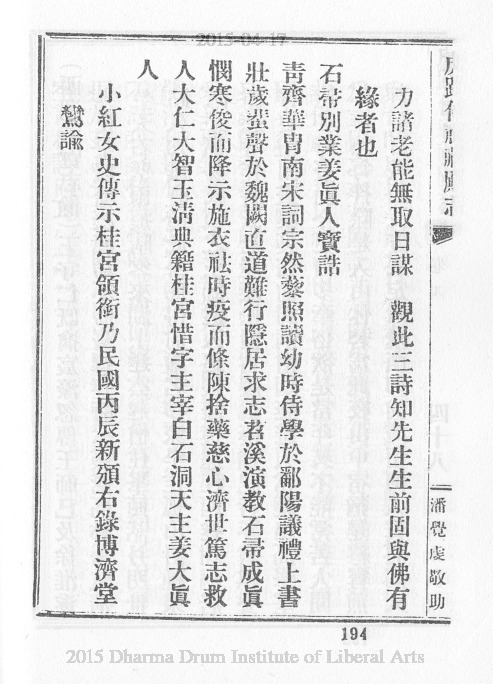 2015-04-17
力諸老能無取日謀　觀此三詩知先生生前固與佛有
緣者也
石帚別業姜眞人寶誥
靑齊華冑南宋詞宗然藜照讀幼時侍學於鄱陽議禮上書
壯歲蜚聲於魏闕直道難行隱居求志苕溪演教石帚成眞
憫寒俊而降示施衣祛時疫而條陳捨藥慈心濟世篤志救
人大仁大智玉淸典籍桂宮惜字主宰白石洞天主姜大眞
人
小紅女史傳示桂宮領銜乃民國丙辰新頒右錄博濟堂
鸞諭
潘覺虔敬助
194
2015 Dharma Drum Institute of Liberal Arts